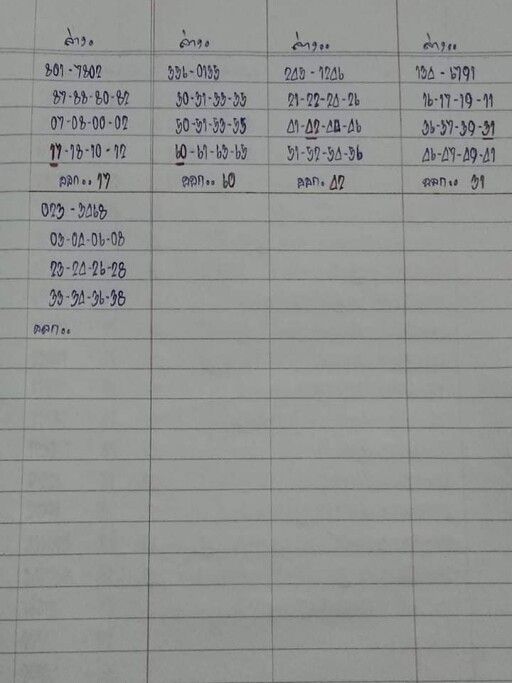 ล่าง..
801-7802
87-88-80-82
07-08-00-02
17-18-10-12
ออก.. 17
ล่าง..
356-0135
30-31-33-35
50-51-53-55
60-61-63-65
ออก.. 60
ล่าง..
243-1246
21-22-24-26
41-42-44-46
31-32-34-36
ออก.. 42
ล่าง..
134-6791
16-17-19-11
36-37-39-31
46-47-49-41
ออก.. 31
023-3468
03-04-06-08
23-24-26-28
33-34-36-38
ออก..